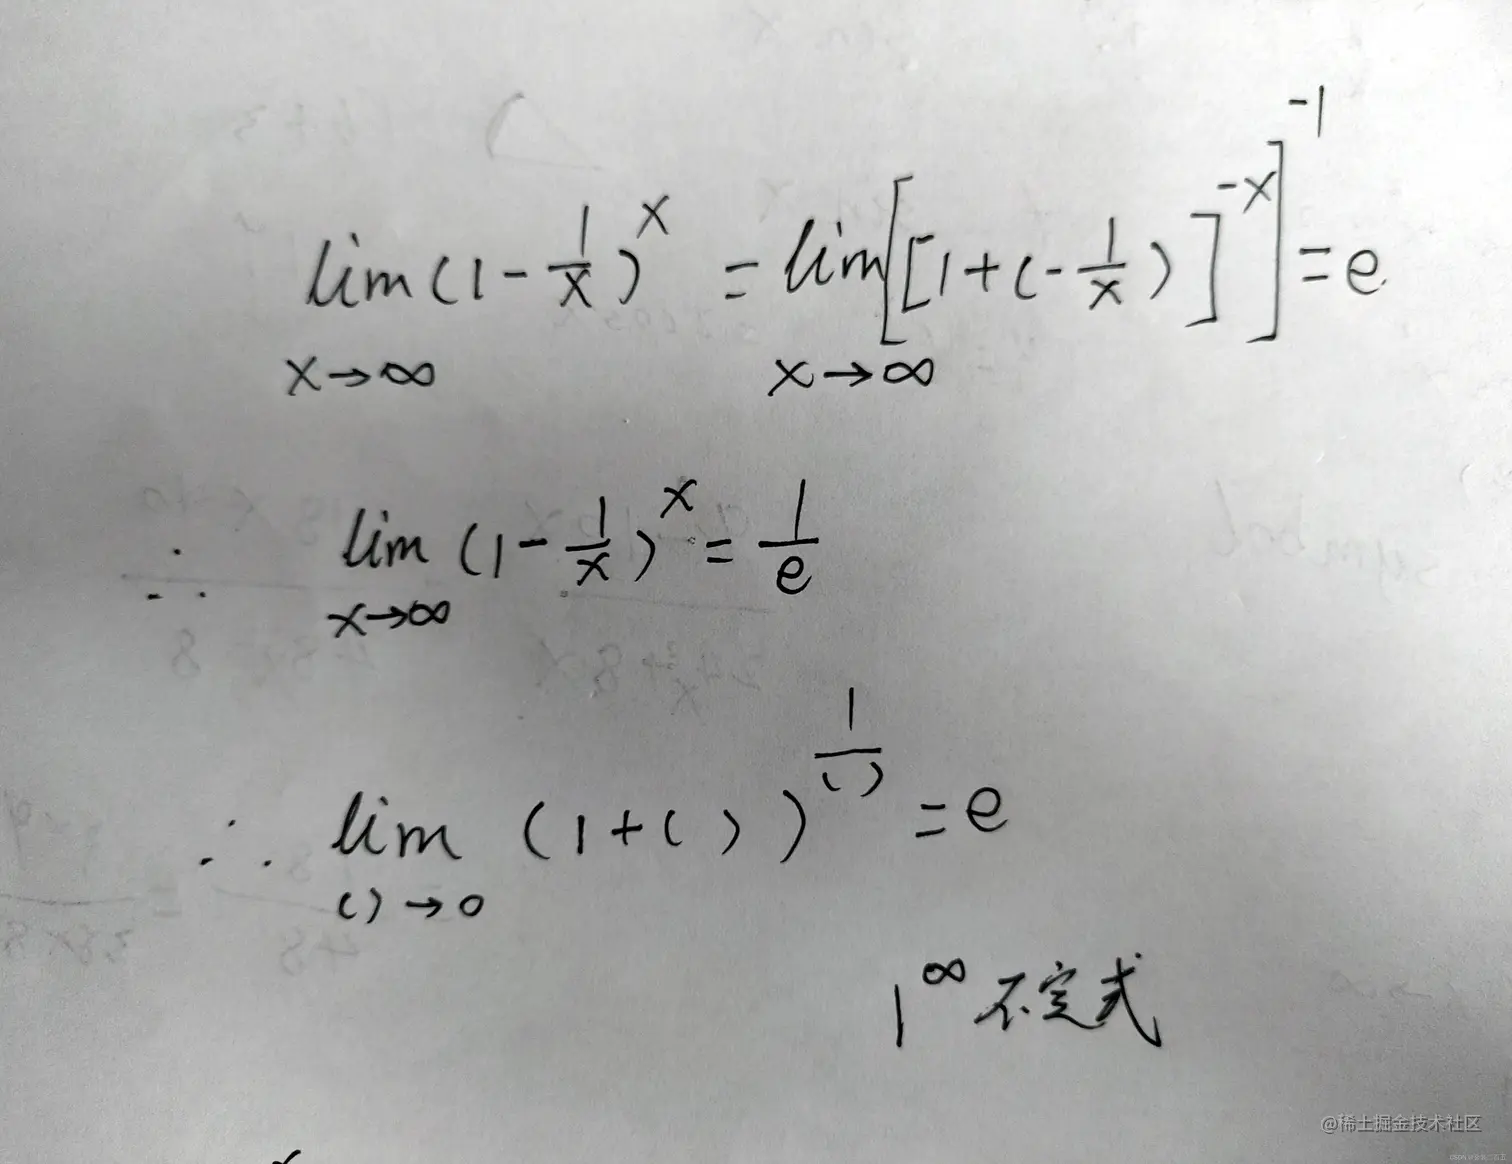 lim(1-1/x)^x = lim[[1+(-1/x)]^-x]^-1 = e
x→∞ x→∞
∴ lim(1-1/x)^x = 1/e
x→∞
∴ lim (1+( ))^1/( ) = e
( )→0
1^∞ 不定式
@稀土掘金技术社区